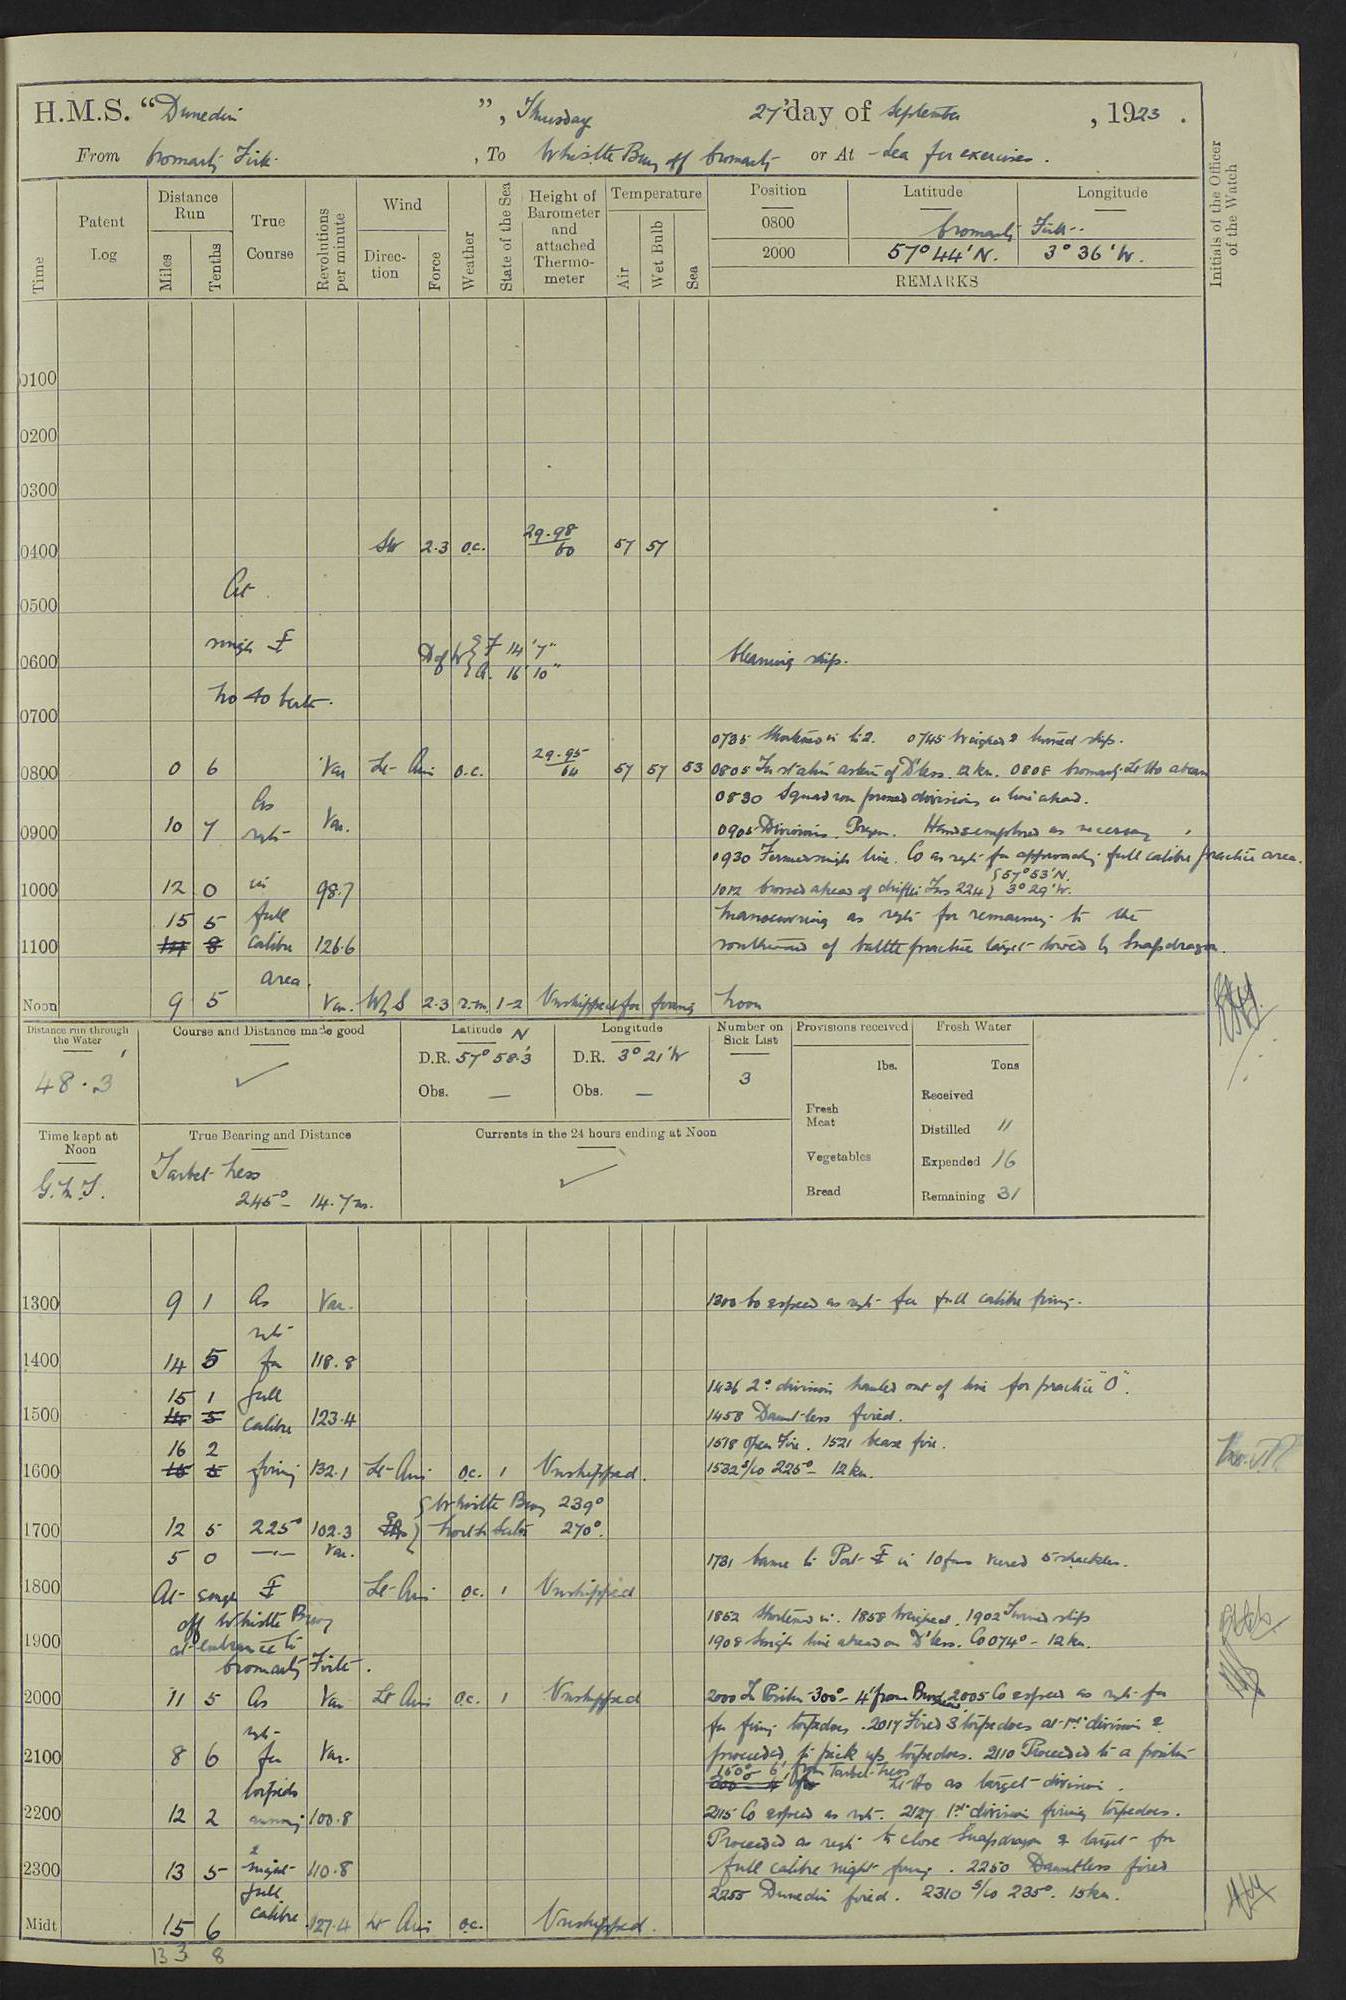 H.M.S. "Dunedin", Thursday 27th day of September, 1923.
From Cromarty Firth, To Whistle Buoy off Cromarty or At Sea for exercises.
Time
Patent Log
Distance Run
Miles
Tenths
True Course
Revolutions per minute
Wind
Direction
Force
Weather
State of the Sea
Height of Barometer and attached Thermometer
Temperature
Air
Wet Bulb
Sea
Position
Latitude
Longitude
0800 Cromarty Firth
2000 57° 44' N. 3° 36' W.
REMARKS
Initials of the Officer of the Watch
0100
0200
0300
0400 SW 2.3 o.c. 29.98 60 57 57
At
0500
single
0600 D of W F 14' 7" A. 16' 10" Cleaning ship.
No 40 berth.
0700
0735 Shortened in to 2. 0745 Weighed & turned ship.
0800 0 6 Var Lt Airs o.c. 29.95 64 57 57 53 0805 In station astern of D'less. 12 kn. 0808 Cromarty Lt Ho abeam
As 0830 Squadron formed divisions in line ahead.
0900 10 7 reqte Var. 0905 Divisions. Prayers. Hands employed as necessary
0930 Formed single line. Co as reqte for approaching full calibre practice area.
1000 12 0 in 98.7 1012 Crossed ahead of drifter Ins 224 57° 53' N. 3° 29' W.
15 5 full Manoeuvring as reqte for remaining to the
1100 14 8 calibre 126.6 southward of battle practice target towed by Snapdragon.
area.
Noon 9 5 Var. W by S 2.3 1-2 Unshipped for firing Noon
Distance run through the Water
48.3
Course and Distance made good
Latitude N
D.R. 57° 58.3'
Obs. —
Longitude
D.R. 3° 21' W
Obs. —
Number on Sick List
3
Provisions received
lbs.
Fresh Meat
Vegetables
Bread
Fresh Water
Tons
Received
Distilled 11
Expended 16
Remaining 31
Time kept at Noon
G.M.T.
True Bearing and Distance
Tarbet Ness
245° 14.7 m.
Currents in the 24 hours ending at Noon
1300 9 1 As Var. 1300 Co & speed as reqte for full calibre firing.
reqte
1400 14 5 for 118.8
15 1 full 1436 2nd division hauled out of line for practice "O".
1500 14 5 calibre 123.4 1458 Dauntless fired.
16 2 1518 Open Fire. 1521 Cease fire.
1600 15 5 firing 132.1 Lt Airs o.c. 1 Unshipped. 1532 S/Co 225° 12 kn.
Whistle Buoy 239°
1700 12 5 225° 102.3 North Sutor 270°.
5 0 Var. 1731 Came to Port in 10 fms veered 5 shackles.
1800 At single Lt Airs o.c. 1 Unshipped
off Whistle Buoy 1852 Shortened in. 1858 Weighed. 1902 Turned ship
1900 at entrance to 1908 Single line ahead on D'less. Co 074° 12 kn.
Cromarty Firth.
2000 11 5 As Var Lt Airs o.c. 1 Unshipped 2000 In Position 300° 4' from 2005 Co & speed as reqte for
reqte for firing torpedoes. 2017 Fired 3 torpedoes at 1st division &
2100 8 6 for Var. proceeded to pick up torpedoes. 2110 Proceeded to a position
torpedo 150° 6' from Tarbet Ness Lt Ho as target division.
2200 12 2 running 100.8 2115 Co & speed as reqte. 2127 1st division firing torpedoes.
& Proceeded as reqte to close Snapdragon & target for
2300 13 5 night 110.8 full calibre night firing. 2250 Dauntless fired
full 2255 Dunedin fired. 2310 S/Co 235°. 15 kn.
calibre
Midt 15 6 127.4 Lt Airs o.c. Unshipped.
13 3 8